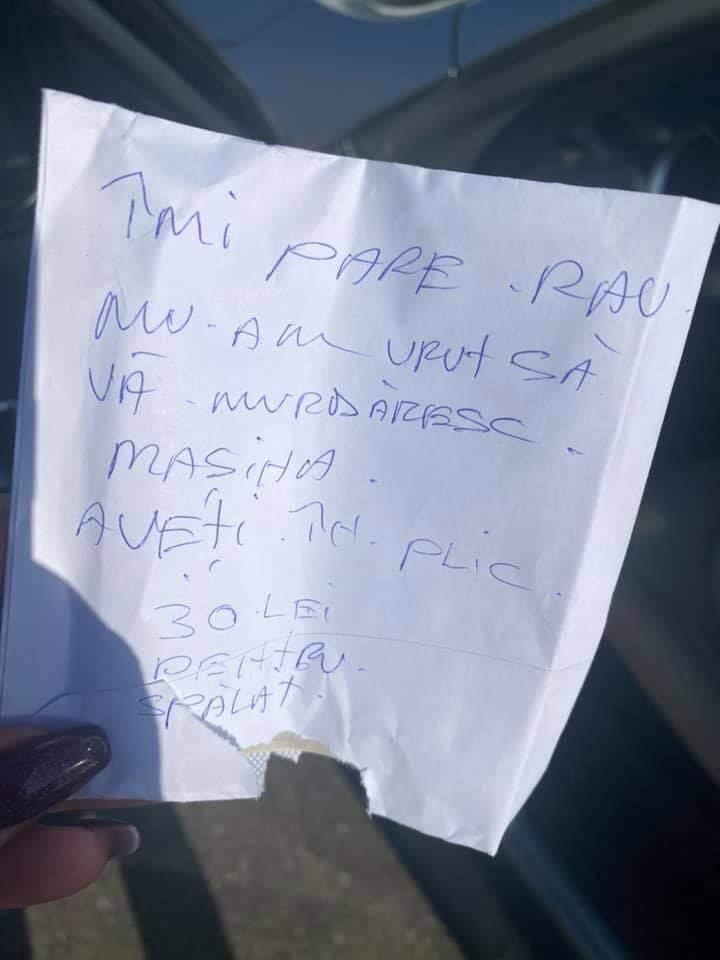 ÎMI PARE RAU.
NU AM VRUT SĂ
VĂ MURDĂRESC.
MAȘINA.
AVEȚI ÎN PLIC.
30 LEI
PENTRU.
SPĂLAT.